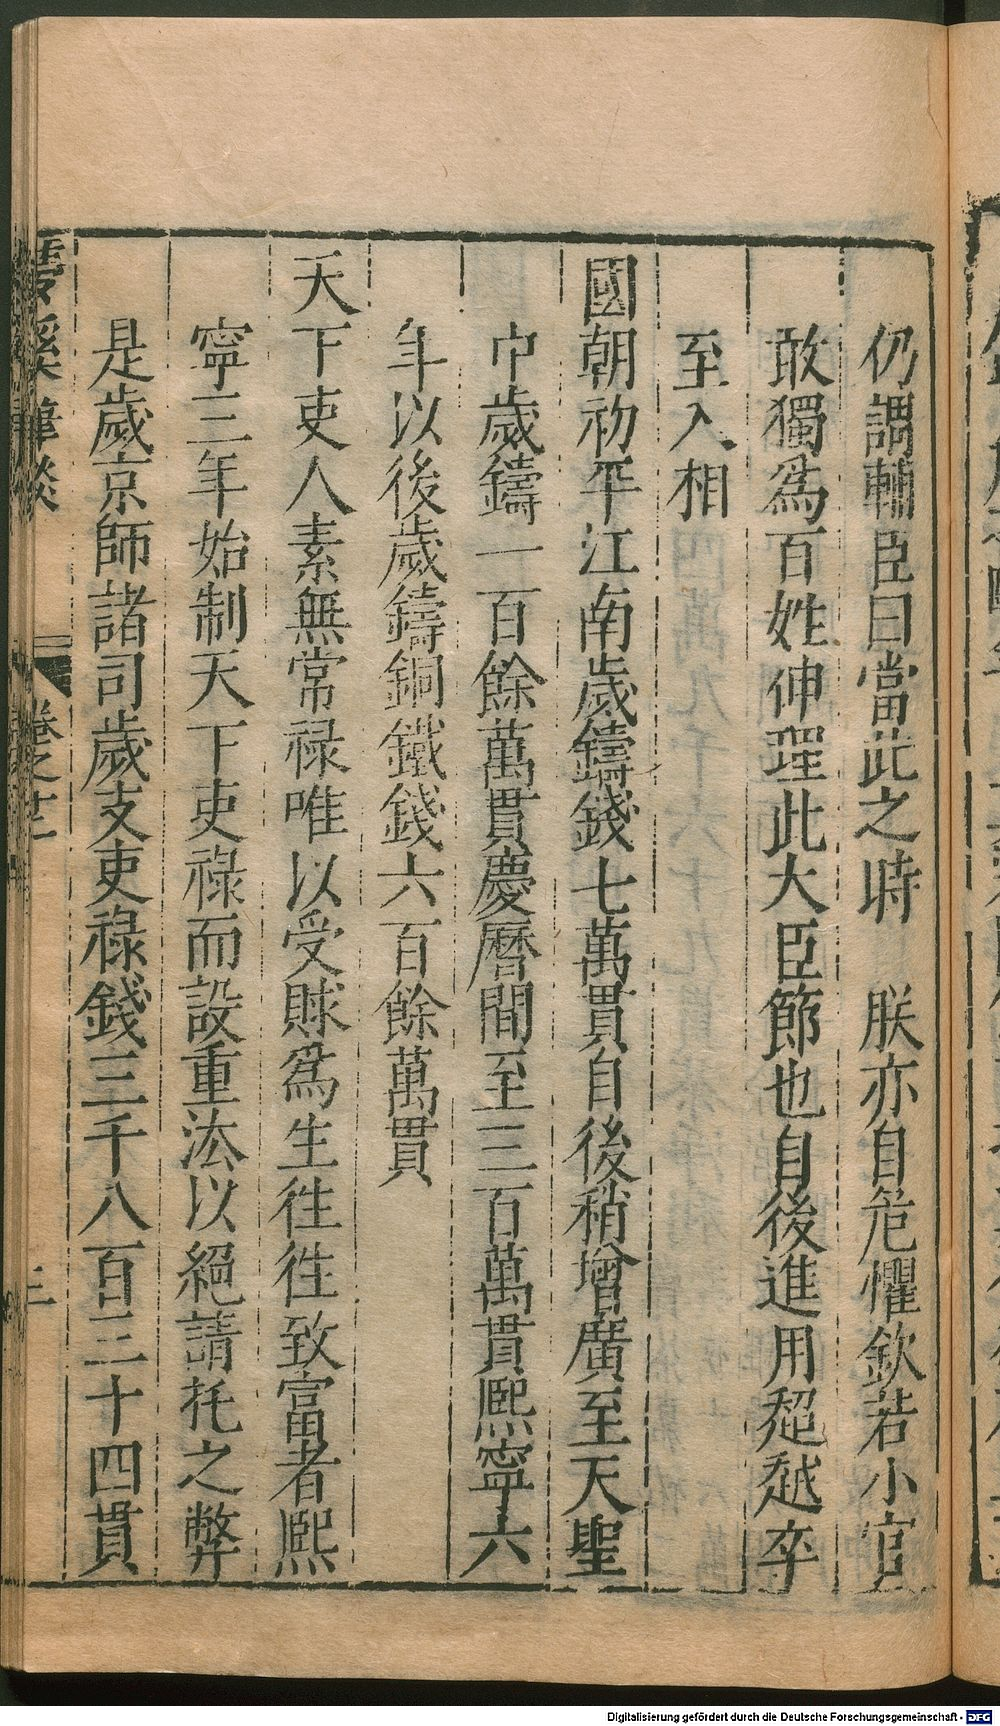 仍謂輔臣曰當此之時　朕亦自危懼欽若小官
敢獨爲百姓伸理此大臣節也自後進用超越卒
至入相
國朝初平江南歲鑄錢七萬貫自後稍增廣至天聖
中歲鑄一百餘萬貫慶曆間至三百萬貫熙寧六
年以後歲鑄銅鐵錢六百餘萬貫
天下吏人素無常祿唯以受賕爲生往往致富者熙
寧三年始制天下吏祿而設重法以絕請托之弊
是歲京師諸司歲支吏祿錢三千八百三十四貫
夢溪筆談　卷之十二
Digitalisierung gefördert durch die Deutsche Forschungsgemeinschaft - DFG